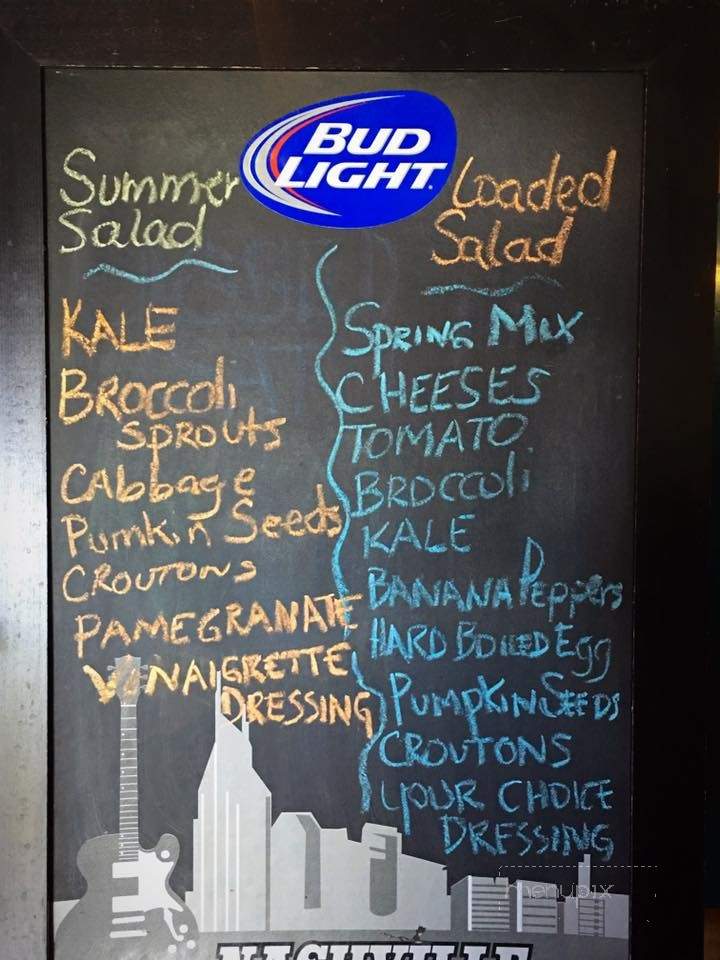 BUD
LIGHT
Summer
Salad
KALE
BROCCOli
SPROUTS
CAbbage
Pumkin Seeds
CROUTONS
PAMEGRANATE
VINAIGRETTE
DRESSING
Loaded
Salad
SPRING MIX
CHEESES
TOMATO
BROCCOli
KALE
BANANA Peppers
HARD BOILED Egg
PUMPKIN SEEDS
CROUTONS
YOUR CHOICE
DRESSING
menupix
NASHVILLE